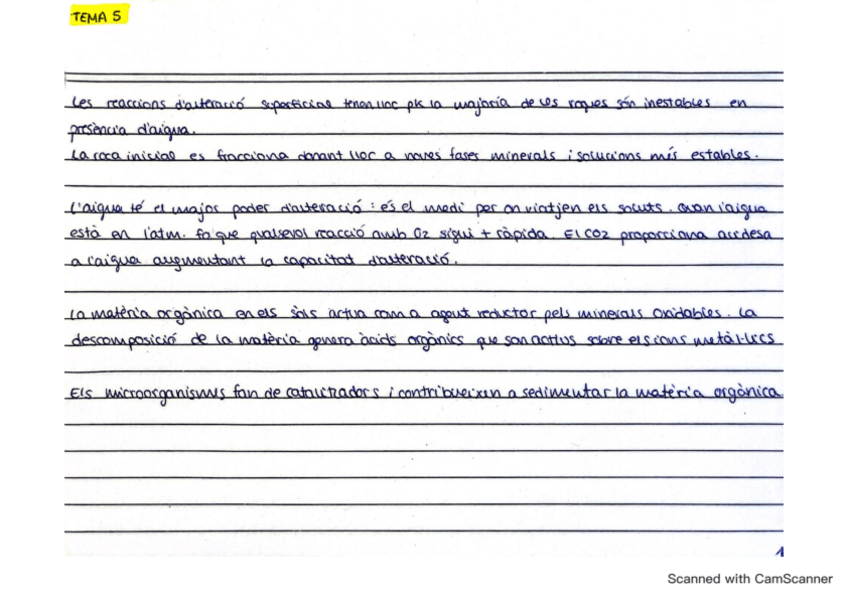 TEMA 5
Les reaccions d'alteració superficial tenen lloc pk la majoria de les roques són inestables en
presència d'aigua.
La roca inicial es fracciona donant lloc a noves fases minerals i solucions més estables.
L'aigua té el major poder d'alteració: és el medi per on viatjen els soluts. Quan l'aigua
està en l'atm. fa que qualsevol reacció amb O2 sigui + ràpida. El CO2 proporciona acidesa
a l'aigua augmentant la capacitat d'alteració.
La matèria orgànica en els sòls actua com a agent reductor pels minerals oxidables. La
descomposició de la matèria genera àcids orgànics que son actius sobre els ions metàl·lics
Els microorganismes fan de catalitzadors i contribueixen a sedimentar la matèria orgànica
1
Scanned with CamScanner